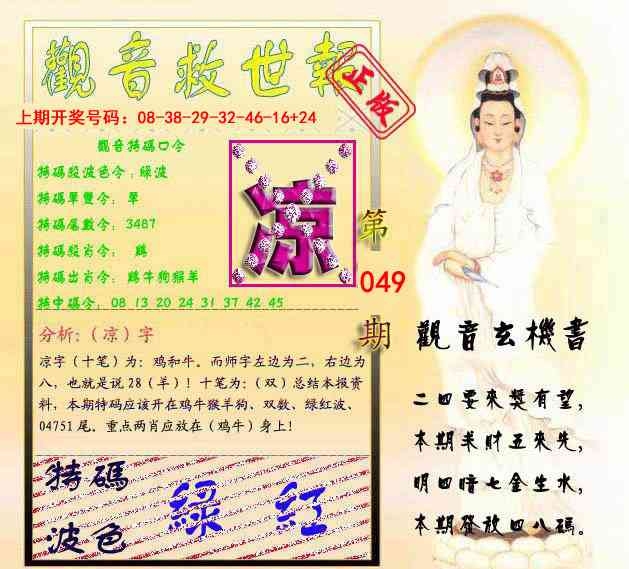 觀音救世報
正版
上期开奖号码：08-38-29-32-46-16+24
觀音特碼口令
特碼段波色令：綠波
特碼單雙令： 單
特碼尾數令： 3487
特碼段肖令： 鷄
特碼出肖令： 鷄牛狗猴羊
特中碼令： 08 13 20 24 31 37 42 45
凉
第
049
期
分析：（凉）字
凉字（十笔）为：鸡和牛。而师字左边为二，右边为
八，也就是说 28（羊）！十笔为：（双）总结本报资
料，本期特码应该开在鸡牛猴羊狗、双数、绿红波、
04751 尾。重点两肖应放在（鸡牛）身上！
特碼
波色
綠 紅
觀音玄機書
二四要來獎有望，
本期羊財五來先，
明四暗七金生水，
本期發放四八碼。